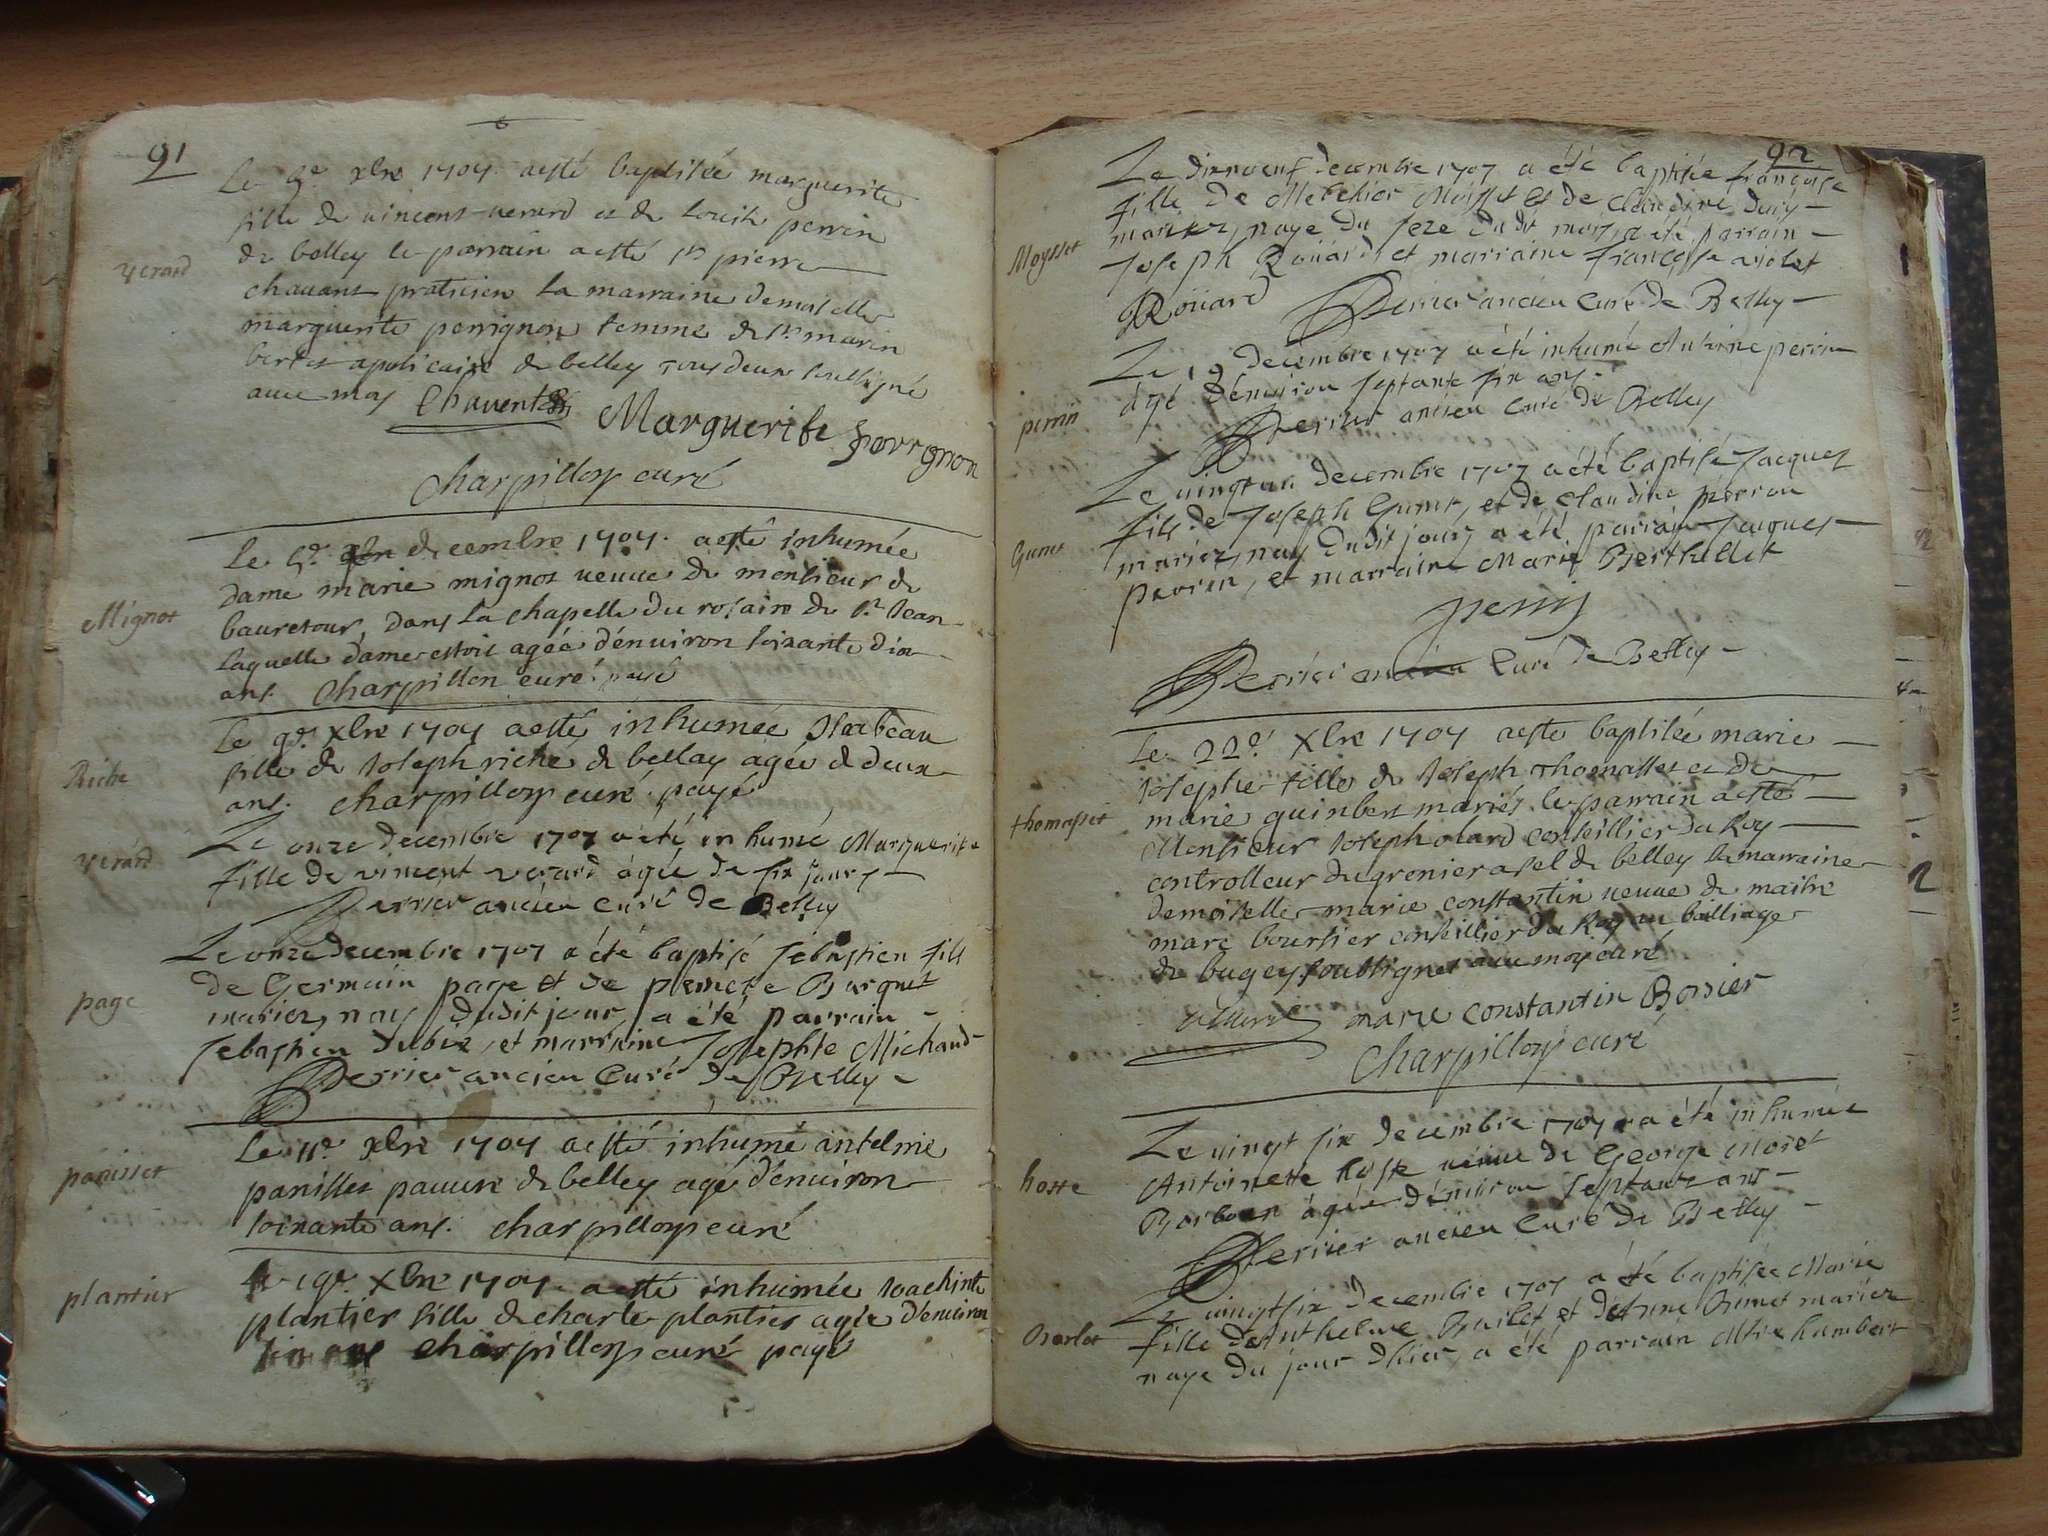 91
Le 5e xbre 1707 a esté baptisée marguerite
fille de vincent verard et de louise perrin
verard
de belley le parrain a esté sr pierre
chavant praticien la marraine demoiselle
marguerite perrignon femme de sr marin
apoticaire de belley tous deux soubsigné
avec moy Chavent Marguerite perrgnon
Charpillon curé
Le 5e decembre 1707. a esté inhumée
dame marie mignot veuve de monsieur de
Mignot
bauretour, dans la chapelle du rosaire de st Jean
laquelle dame estoit agée d'environ soixante dix
ans. Charpillon curé. payé
Le 9e xbre 1707 a esté inhumée Isabeau
fille de Joseph riche de belley agée de deux
Riche
ans. Charpillon curé. payé
Le onze decembre 1707 a eté inhumé Marguerite
verard
fille de vincent verard âgée de six jours
Perrier ancien curé de Belley
Le onze decembre 1707 a été baptisé sebastien fils
de Germain page et de pernete Burquet
page
mariez, nay dudit jour, a été parrain
sebastien dubie, et marraine Josephte Michaud
Perrier ancien Curé de Belley
Le 11e xbre 1707 a esté inhumé antelme
panisset
panisset pauvre de belley agé d'environ
soixante ans. Charpillon curé
Le 19e xbre 1707. a esté inhumée Joachinte
plantier
plantier fille de charle plantier agée d'environ
Charpillon curé payé
92
Le dixneuf decembre 1707 a été baptisée françoise
fille de Melchior Moysset et de claudine
Moysset
mariez, naye du seze dudit mois, a été parrain
Joseph Roüard, et marraine françoise
Roüard Perrier ancien Curé de Belley
Le 19 decembre 1707 a été inhumé Antoine perrin
perrin
âgé d'environ septante six ans.
Perrier ancien curé de Belley
Le vingtun decembre 1707 a été baptisé Jacques
fils de Joseph Gumet, et de claudine perron
Gumet
mariez, nay dudit jour, a été parrain Jacques
perrin, et marraine Marie Berthellet
perrin
Perrier ancien Curé de Belley
Le 22e xbre 1707 a esté baptisée marie
Josephe fille de Joseph thomasset et de
thomasset
marie guinbert mariés le parrain a esté
Monsieur Joseph olard conseillier du Roy
controlleur du grenier a sel de belley la marraine
demoiselle marie constantin veuve de maitre
marc boursier conseillier du Roy au balliage
de bugey soubsignes avec moy curé
marie constantin Borsier
Charpillon curé
Le vingt six decembre 1707 a été inhumée
Antoinette hoste veuve de George Moret
hoste
Barbour âgée d'environ septante ans
Perrier ancien Curé de Belley
Le vingtsix decembre 1707 a été baptisée Marie
fille d'Anthelme et d'Anne mariez
naye du jour d'hier, a été parrain humbert